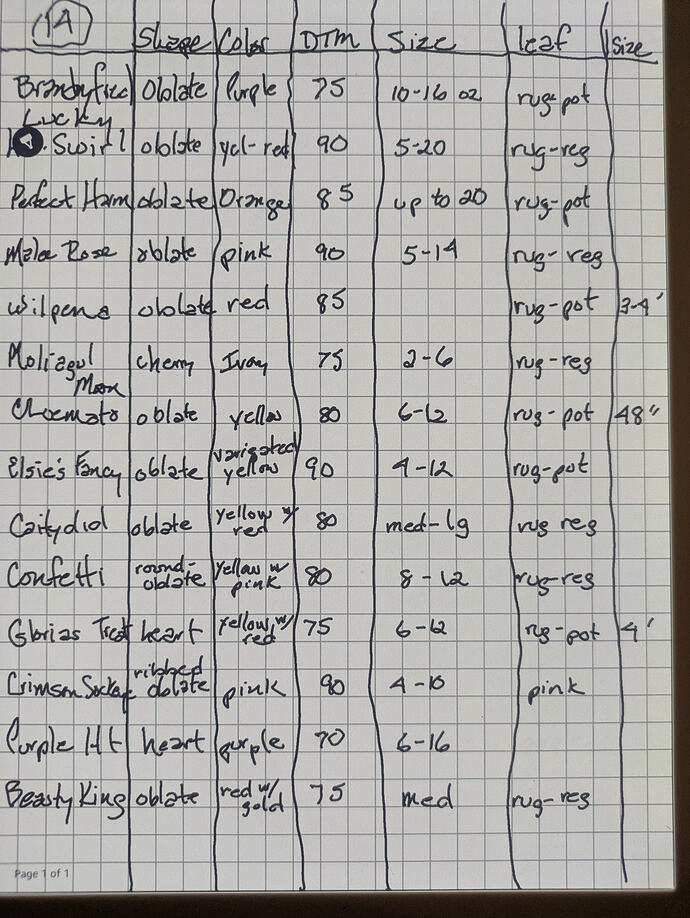 1A Shape Color DTM Size leaf Size
Brandyfred Oblate Purple 75 10-16 oz rug-pot
Lucky
. Swirl oblate yel-red 90 5-20 rug-reg
Perfect Harm oblate Orange 85 up to 20 rug-pot
Mala Rose oblate pink 90 5-14 rug-reg
Wilpena oblate red 85 rug-pot 3-4'
Moliagul cherry Ivory 75 2-6 rug-reg
Moon
Chocmato oblate yellow 80 6-12 rug-pot 48"
varigated
Elsie's Fancy oblate yellow 90 4-12 rug-pot
Caitydid oblate yellow w/ 80 med-lg rug reg
red
Confetti round- yellow w 80 8-12 rug-reg
oblate pink
Glorias Treat heart yellow w/ 75 6-12 rug-pot 4'
red
ribbed
Crimson Sockeye oblate pink 90 4-10 pink
Purple Ht heart purple 70 6-16
Beauty King oblate red w/ 75 med rug-reg
gold
Page 1 of 1